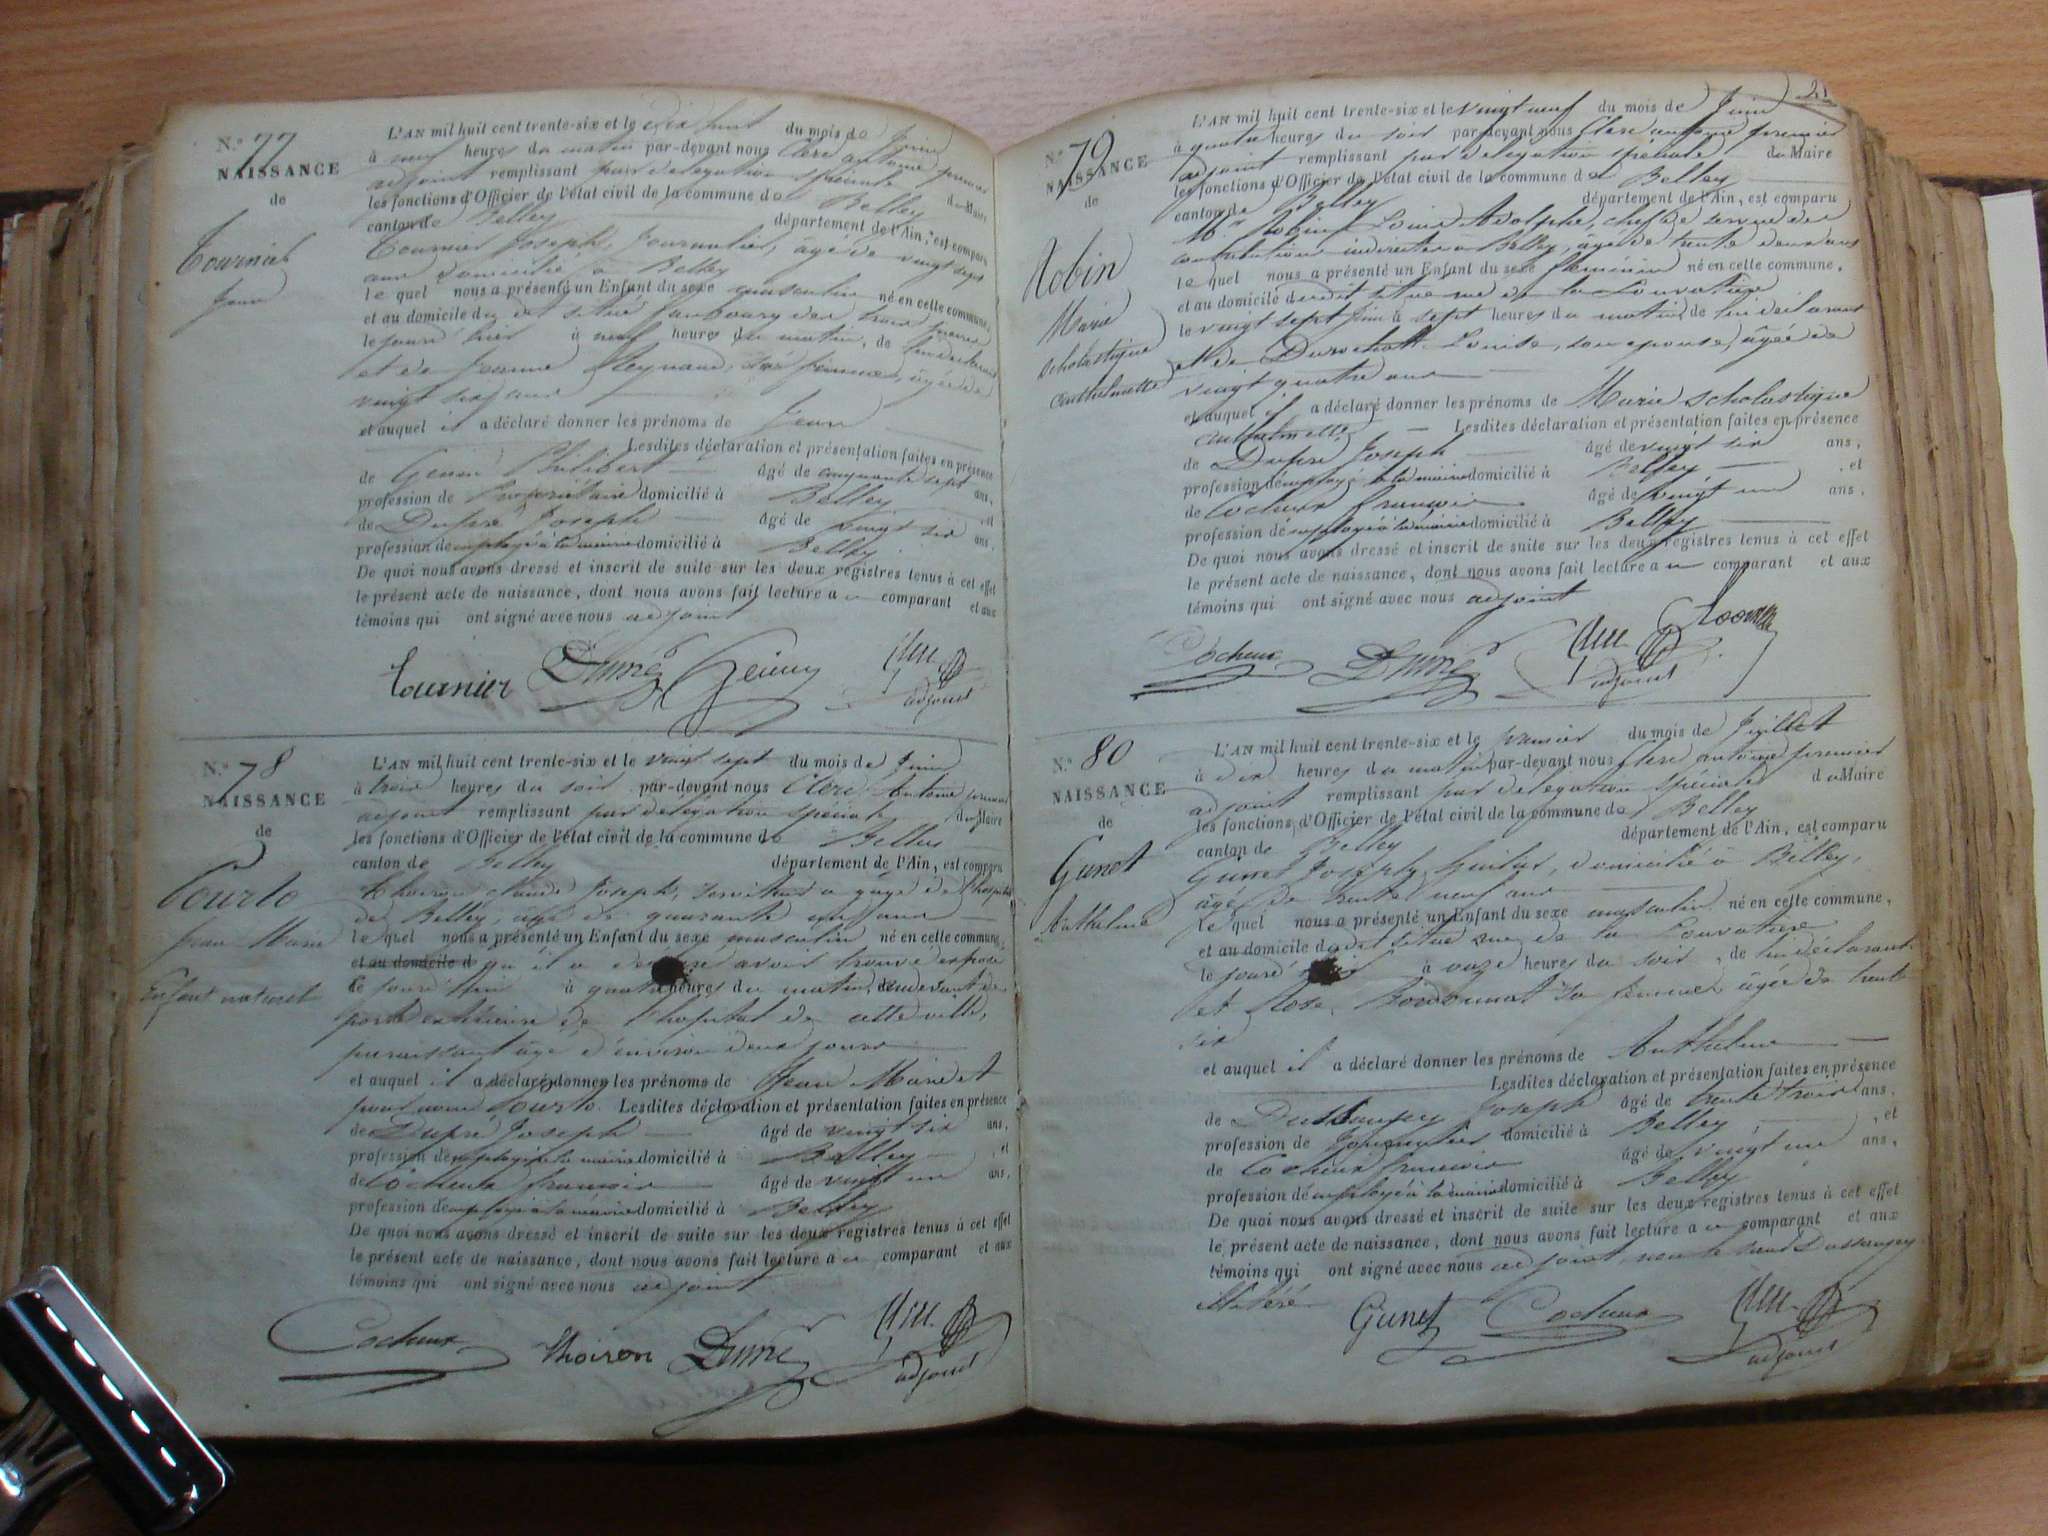 N.° 77
NAISSANCE
de
Tournier
Jean
L'AN mil huit cent trente-six et le dix huit du mois de Juin
à neuf heures du matin par-devant nous Clerc antoine premier
adjoint remplissant par delegation spéciale du Maire
les fonctions d'Officier de l'état civil de la commune de Belley
canton de Belley département de l'Ain, est comparu
Tournier Joseph, Journalier, âgé de vingt sept
ans domicilié à Belley
le quel nous a présenté un Enfant du sexe masculin né en cette commune,
et au domicile du dit situé faubourg des
le jourd'hier à neuf heures du matin, de lui déclarant
et de Jeanne Reynaud, sa femme, âgée de
vingt six ans
et auquel il a déclaré donner les prénoms de Jean
Lesdites déclaration et présentation faites en présence
de Philibert âgé de cinquante sept ans,
profession de Propriétaire domicilié à Belley et
de Dupré Joseph âgé de vingt six ans,
profession d'employé à la mairie domicilié à Belley
De quoi nous avons dressé et inscrit de suite sur les deux registres tenus à cet effet
le présent acte de naissance, dont nous avons fait lecture au comparant et aux
témoins qui ont signé avec nous adjoint
tournier Dupré
adjoint
N.° 78
NAISSANCE
de
Courto
Jean Marie
Enfant naturel
L'AN mil huit cent trente-six et le vingt sept du mois de Juin
à trois heures du soir par-devant nous Clerc Antoine premier
adjoint remplissant par delegation spéciale du Maire
les fonctions d'Officier de l'état civil de la commune de Belley
canton de Belley département de l'Ain, est comparu
thoiron claude Joseph, serviteur à gage de l'hospital
de Belley, âgé de quarante ans
le quel nous a présenté un Enfant du sexe masculin né en cette commune,
et au domicile d qu'il a avoir trouvé exposé
le jourd'hui à quatre heures du matin, au devant de
porte extérieure de l'hopital de cette ville,
paraissant âgé d'environ deux jours
et auquel il a déclaré donner les prénoms de Jean Marie et
pour nom Courto. Lesdites déclaration et présentation faites en présence
de Dupré Joseph âgé de vingt six ans,
profession d'employé à la mairie domicilié à Belley et
de Cocheux francois âgé de vingt un ans,
profession d'employé à la mairie domicilié à Belley
De quoi nous avons dressé et inscrit de suite sur les deux registres tenus à cet effet
le présent acte de naissance, dont nous avons fait lecture au comparant et aux
témoins qui ont signé avec nous adjoint
Cocheux thoiron Dupré
adjoint
21
N.° 79
NAISSANCE
de
Robin
Marie
scholastique
anthelmette
L'AN mil huit cent trente-six et le vingt neuf du mois de Juin
à quatre heures du soir par-devant nous Clerc antoine premier
adjoint remplissant par delegation spéciale du Maire
les fonctions d'Officier de l'état civil de la commune de Belley
canton de Belley département de l'Ain, est comparu
Mr. Robin Louis Adolphe, chef de service des
contributions indirectes à Belley, âgé de trente deux ans
le quel nous a présenté un Enfant du sexe féminin né en cette commune,
et au domicile du dit situé rue de la
le vingt sept Juin à sept heures du matin, de lui déclarant
et de Louise, son epouse, âgée de
vingt quatre ans
et auquel il a déclaré donner les prénoms de Marie scholastique
anthelmette Lesdites déclaration et présentation faites en présence
de Dupré Joseph âgé de vingt six ans,
profession d'employé à la mairie domicilié à Belley et
de Cocheux francois âgé de vingt un ans,
profession d'employé à la mairie domicilié à Belley
De quoi nous avons dressé et inscrit de suite sur les deux registres tenus à cet effet
le présent acte de naissance, dont nous avons fait lecture au comparant et aux
témoins qui ont signé avec nous adjoint
Cocheux Dupré
adjoint
N.° 80
NAISSANCE
de
Gunet
Anthelme
L'AN mil huit cent trente-six et le premier du mois de Juillet
à dix heures du matin par-devant nous Clerc antoine premier
adjoint remplissant par delegation spéciale du Maire
les fonctions d'Officier de l'état civil de la commune de Belley
canton de Belley département de l'Ain, est comparu
Gunet Joseph, domicilié à Belley,
âgé de trente neuf ans
le quel nous a présenté un Enfant du sexe masculin né en cette commune,
et au domicile du dit situé rue de la
le jourd'hier à onze heures du soir, de lui déclarant
et Rose sa femme âgée de trente
six
et auquel il a déclaré donner les prénoms de Anthelme
Lesdites déclaration et présentation faites en présence
de Joseph âgé de trente trois ans,
profession de Journalier domicilié à Belley, et
de Cocheux francois âgé de vingt un ans,
profession d'employé à la mairie domicilié à Belley
De quoi nous avons dressé et inscrit de suite sur les deux registres tenus à cet effet
le présent acte de naissance, dont nous avons fait lecture au comparant et aux
témoins qui ont signé avec nous adjoint,
illitéré
Gunet Cocheux
adjoint